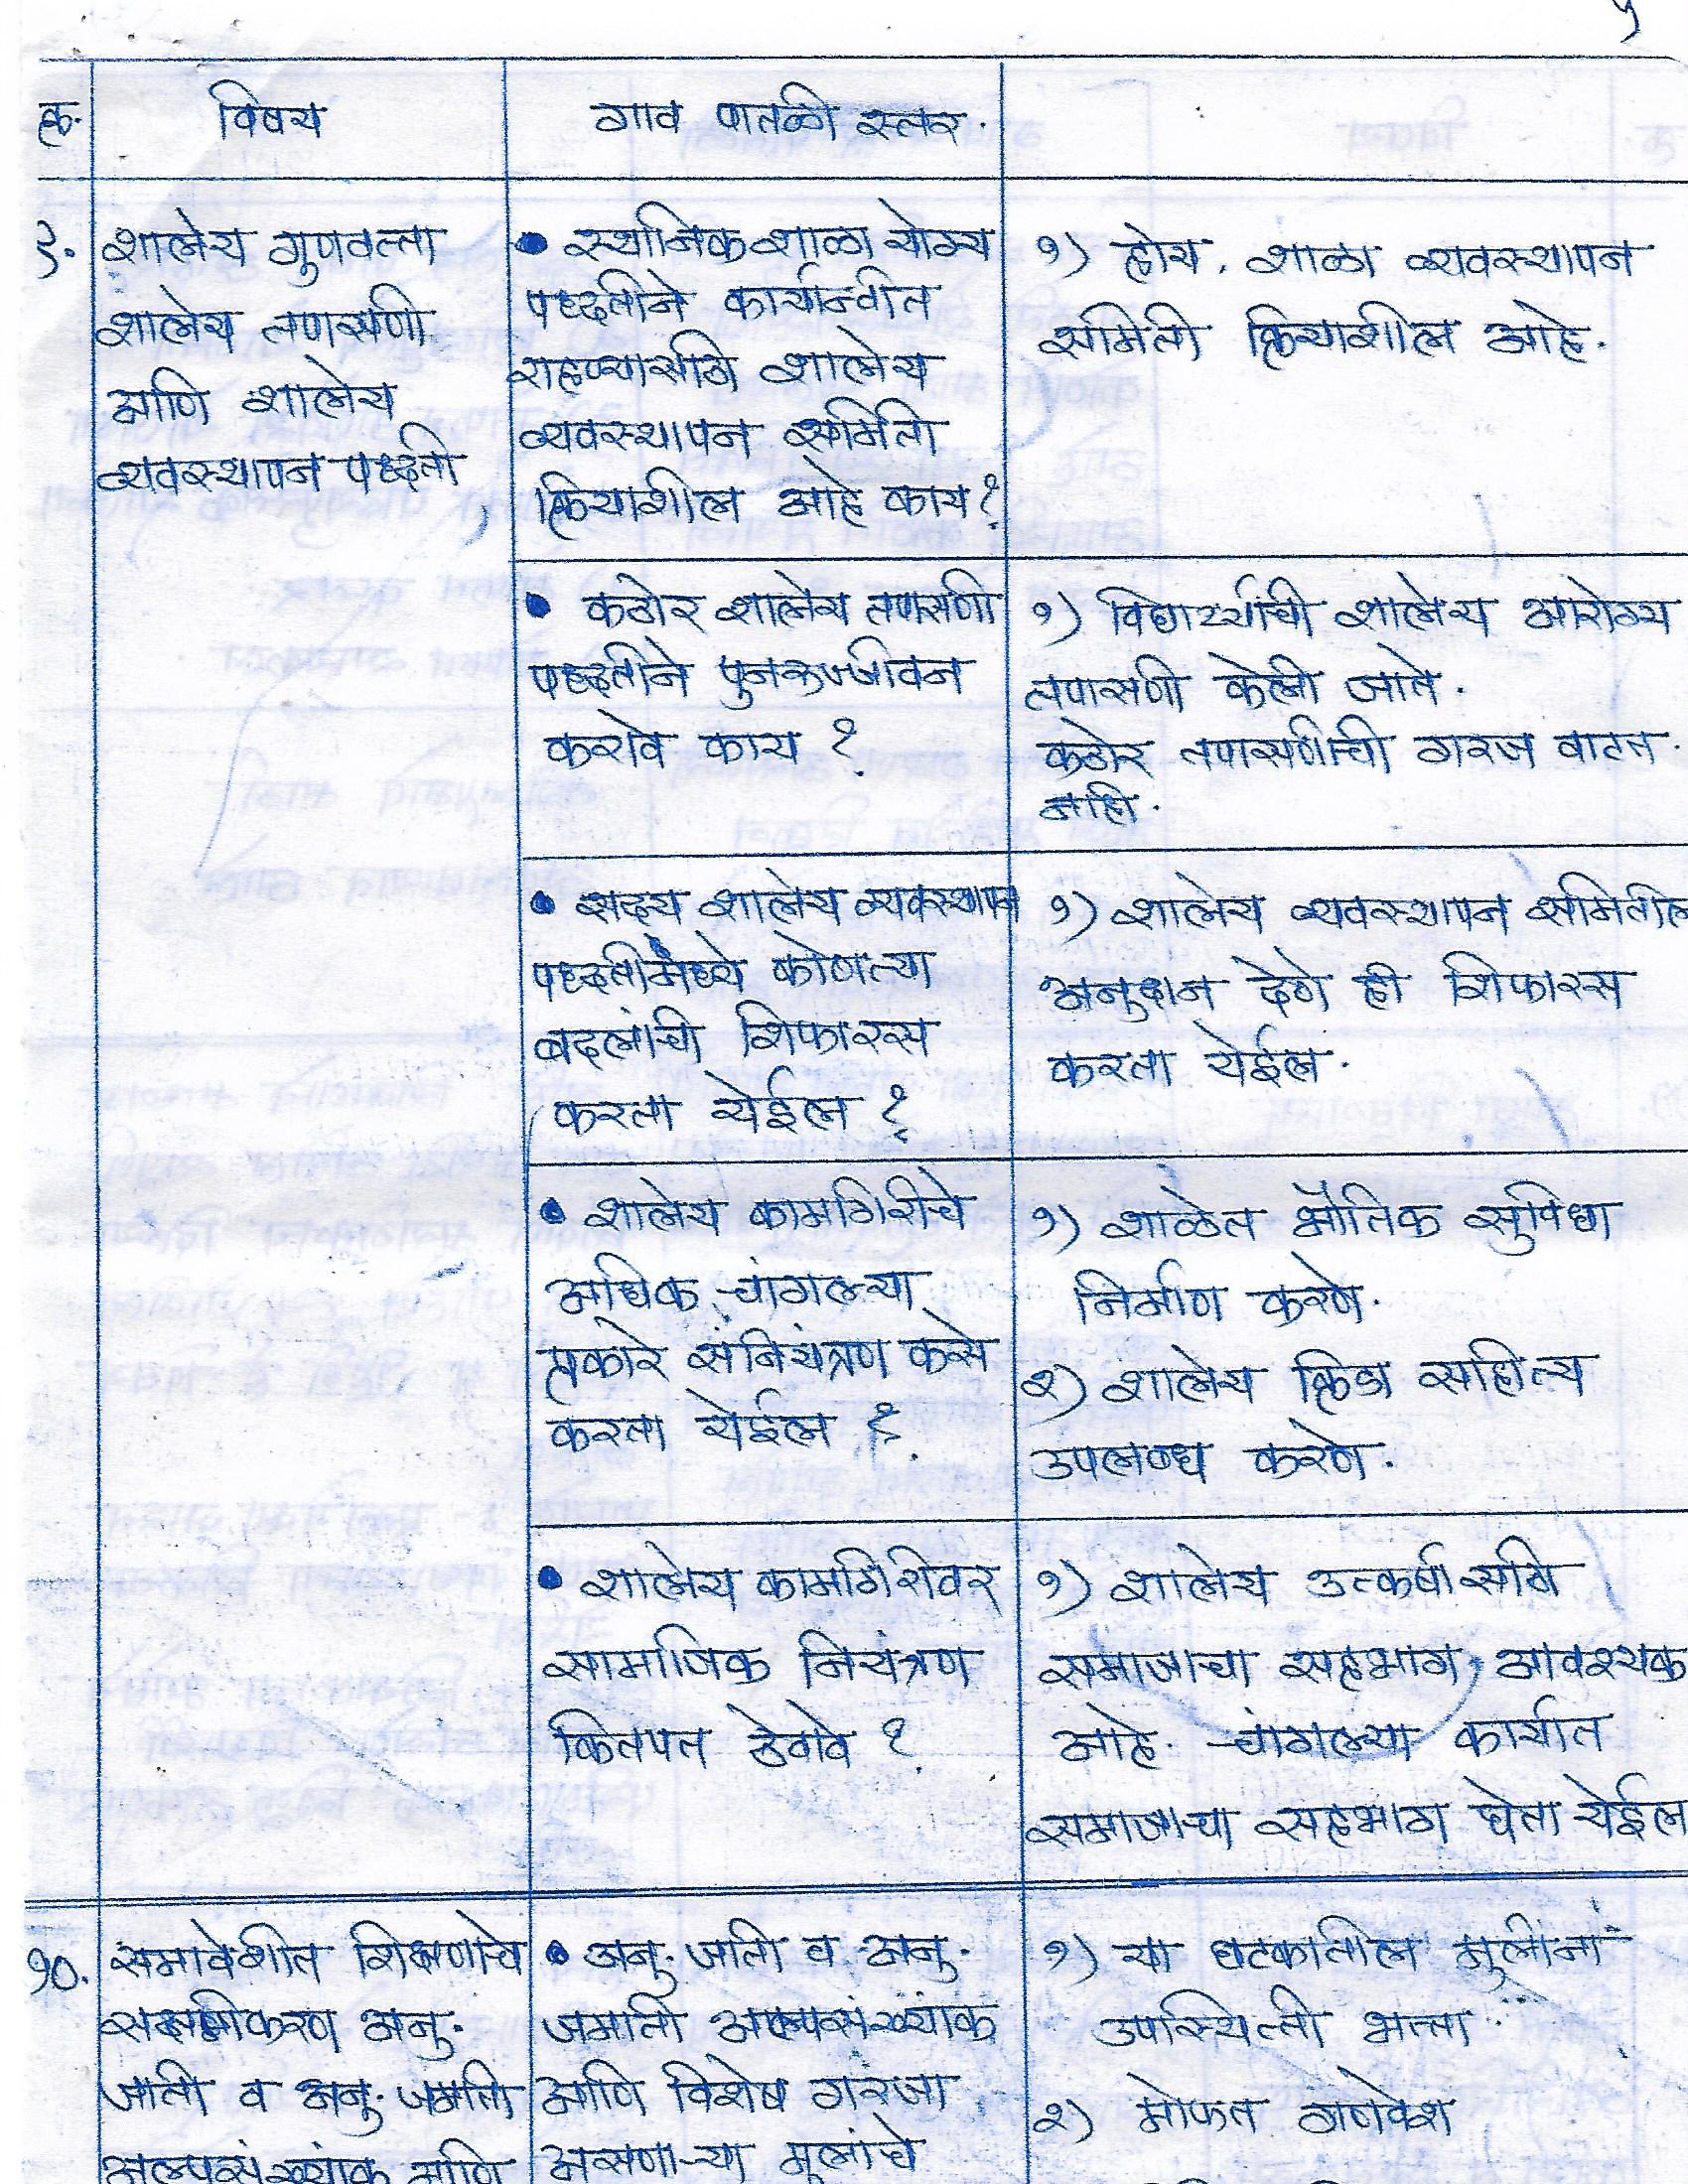 ५
क्र. विषय गाव पातळी स्तर.
९. शालेय गुणवत्ता
शालेय तपासणी
आणि शालेय
व्यवस्थापन पध्दती
• स्थानिक शाळा योग्य
पध्दतीने कार्यान्वीत
राहण्यासाठी शालेय
व्यवस्थापन समिती
क्रियाशील आहे काय?
१) होय. शाळा व्यवस्थापन
समिती क्रियाशील आहे.
• कठोर शालेय तपासणी
पध्दतीने पुनरुज्जीवन
करावे काय ?
१) विद्यार्थ्यांची शालेय आरोग्य
तपासणी केली जाते.
कठोर तपासणीची गरज वाटत
नाही.
• सद्य शालेय व्यवस्थापन
पध्दतीमध्ये कोणत्या
बदलांची शिफारस
करता येईल ?
१) शालेय व्यवस्थापन समितील
अनुदान देणे ही शिफारस
करता येईल.
• शालेय कामगिरीचे
अधिक चांगल्या
प्रकारे संनियंत्रण कसे
करता येईल ?
१) शाळेत भौतिक सुविधा
निर्माण करणे.
२) शालेय क्रिडा साहित्य
उपलब्ध करणे.
• शालेय कामगिरीवर
सामाजिक नियंत्रण
कितपत ठेवावे ?
१) शालेय उत्कर्षासाठी
समाजाचा सहभाग आवश्यक
आहे. चांगल्या कार्यात
समाजाचा सहभाग घेता येईल
१०. समावेशीत शिक्षणाचे
सक्षमीकरण अनु.
जाती व अनु. जमाती
अल्पसंख्यांक आणि
• अनु. जाती व अनु.
जमाती अल्पसंख्यांक
आणि विशेष गरजा
असणाऱ्या मुलांचे
१) या घटकातील मुलींना
उपस्थिती भत्ता
२) मोफत गणवेश